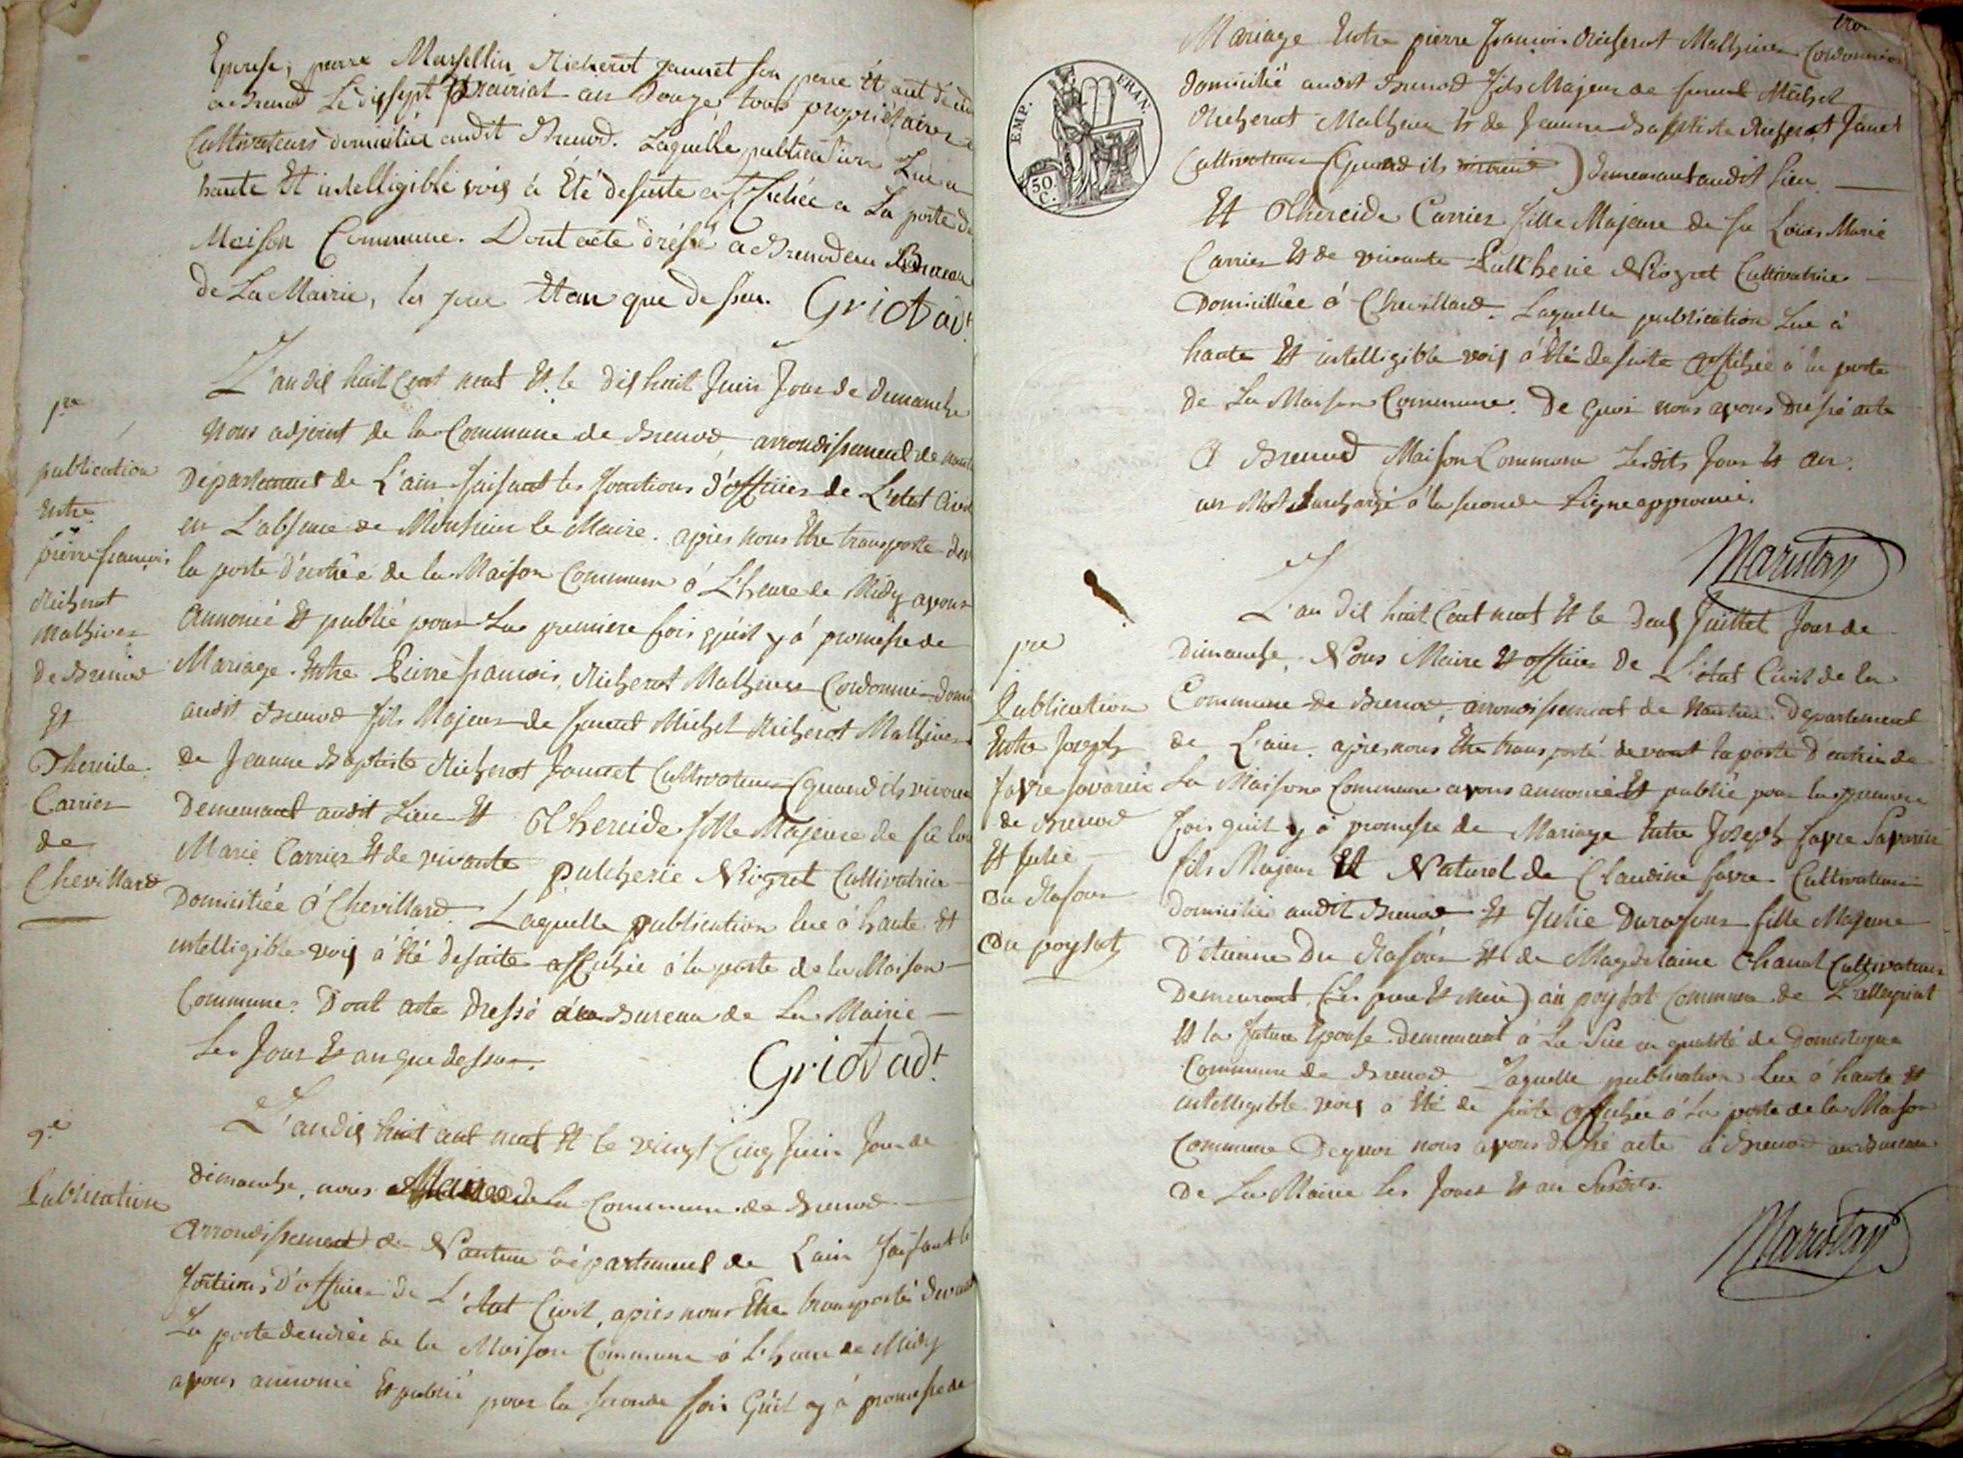 Epouse, pierre Marsellin Richerot jaunet son pere Etant décédé
a Brenod Le dixsept prairial an douze tous propriétaires
Cultivateurs domiciliés audit Brenod. Laquelle publication Lue a
haute Et intelligible voix à Eté desuite affichée a La porte de
Maison Commune. Dont acte dréssé a Brenod au Bureau
de La Mairie, les jour Etan que dessus. Griot adt
1re
publication
Entre
pierre françois
Richerot
Mathieu
de Brenod
Et
Thereide
Carrier
de
Chevillard
L'an dix huit Cent neuf Et le dix huit Juin Jour de dimanche
Nous adjoint de la Commune de Brenod arrondissement de nantua
Département de L'ain faisant les fonctions d'officier de L'état Civil
en L'absence de Monsieur le Maire. après nous Etre transporté dev
la porte d'entrée de la Maison Commune à L'heure de Midy avons
Annoncé Et publié pour La premiere fois qu'il y à promesse de
Mariage Entre Pierre françois Richerot Mathieu Cordonnier domi
audit Brenod fils Majeur de furent Michel Richerot Mathieu
de Jeanne Baptiste Richerot Jaunet Cultivateurs (quand ils vivoient
Demeurant audit Lieu Et Thereide fille Majeure de fû Lou
Marie Carrier Et de vivante pulcherie Niogret Cultivatrice
Domiciliée à Chevillard. Laquelle publication lue à haute Et
intelligible voix à Eté desuite affichée à la porte de la Maison
Commune. Dont acte dressé au Bureau de La Mairie
Les Jour Et an que dessus.
Griot adt
2e
Publication
L'an dix huit cent neuf Et le vingt Cinq Juin Jour de
dimanche, nous Maire de La Commune de Brenod
arrondissement de Nantua département de L'ain faisant les
fontions d'officier de L'état Civil, après nous Etre transporté devant
La porte dentrée de la Maison Commune à L'heure de Midy
avons annoncé Et publié pour la seconde fois Qu'il y à promesse de
trois
EMP. FRAN.
50. C.
Mariage Entre pierre françois Richerot Mathieu Cordonnier
domicilié audit Brenod fils Majeur de furent Michel
Richerot Mathieu Et de Jeanne Baptiste Richerot Jaunet
Cultivateurs (Quand ils vivoient) demeurant audit Lieu.
Et Thereide Carrier fille Majeure de fu Louis Marie
Carrier Et de vivante Pulcherie Niogret Cultivatrice
Domiciliée à Chevillard. Laquelle publication Lue à
haute Et intelligible voix à Eté desuite affichée à la porte
de La Maison Commune. De quoi nous avons dressé acte
A Brenod Maison Commune Lesdits Jour Et an.
un Mot surchargé à la seconde Ligne approuvé.
Maristan
pre
Publication
Entre Joseph
favre savarin
de Brenod
Et Julie
Du Rafour
Du poysat
L'an dix huit Cent neuf Et le Deux Juillet Jour de
dimanche. Nous Maire Et officier De L'état Civil de la
Commune de Brenod, arrondissement de Nantua Département
de L'ain après nous Etre transporté devant la porte D'entrée de
La Maison Commune avons annoncé Et publié pour la premiere
fois qu'il y à promesse de Mariage Entre Joseph favre Savarin
fils Majeur Et Naturel de Claudine favre Cultivateur
Domicilié audit Brenod Et Julie Durafour fille Majeure
D'étienne Du Rafour Et de Magdelaine Chanel Cultivateurs
Demeurant (les pere Et Mere) au poysat Commune de Lalleyriat
Et la future Epouse Demeurant à La en qualité de Domestique
Commune de Brenod Laquelle publication Lue à haute Et
intelligible voix à Eté de suite affichée à La porte de la Maison
Commune Dequoi nous avons dréssé acte à Brenod au Bureau
De La Mairie les Jour Et an Susdits.
Maristan